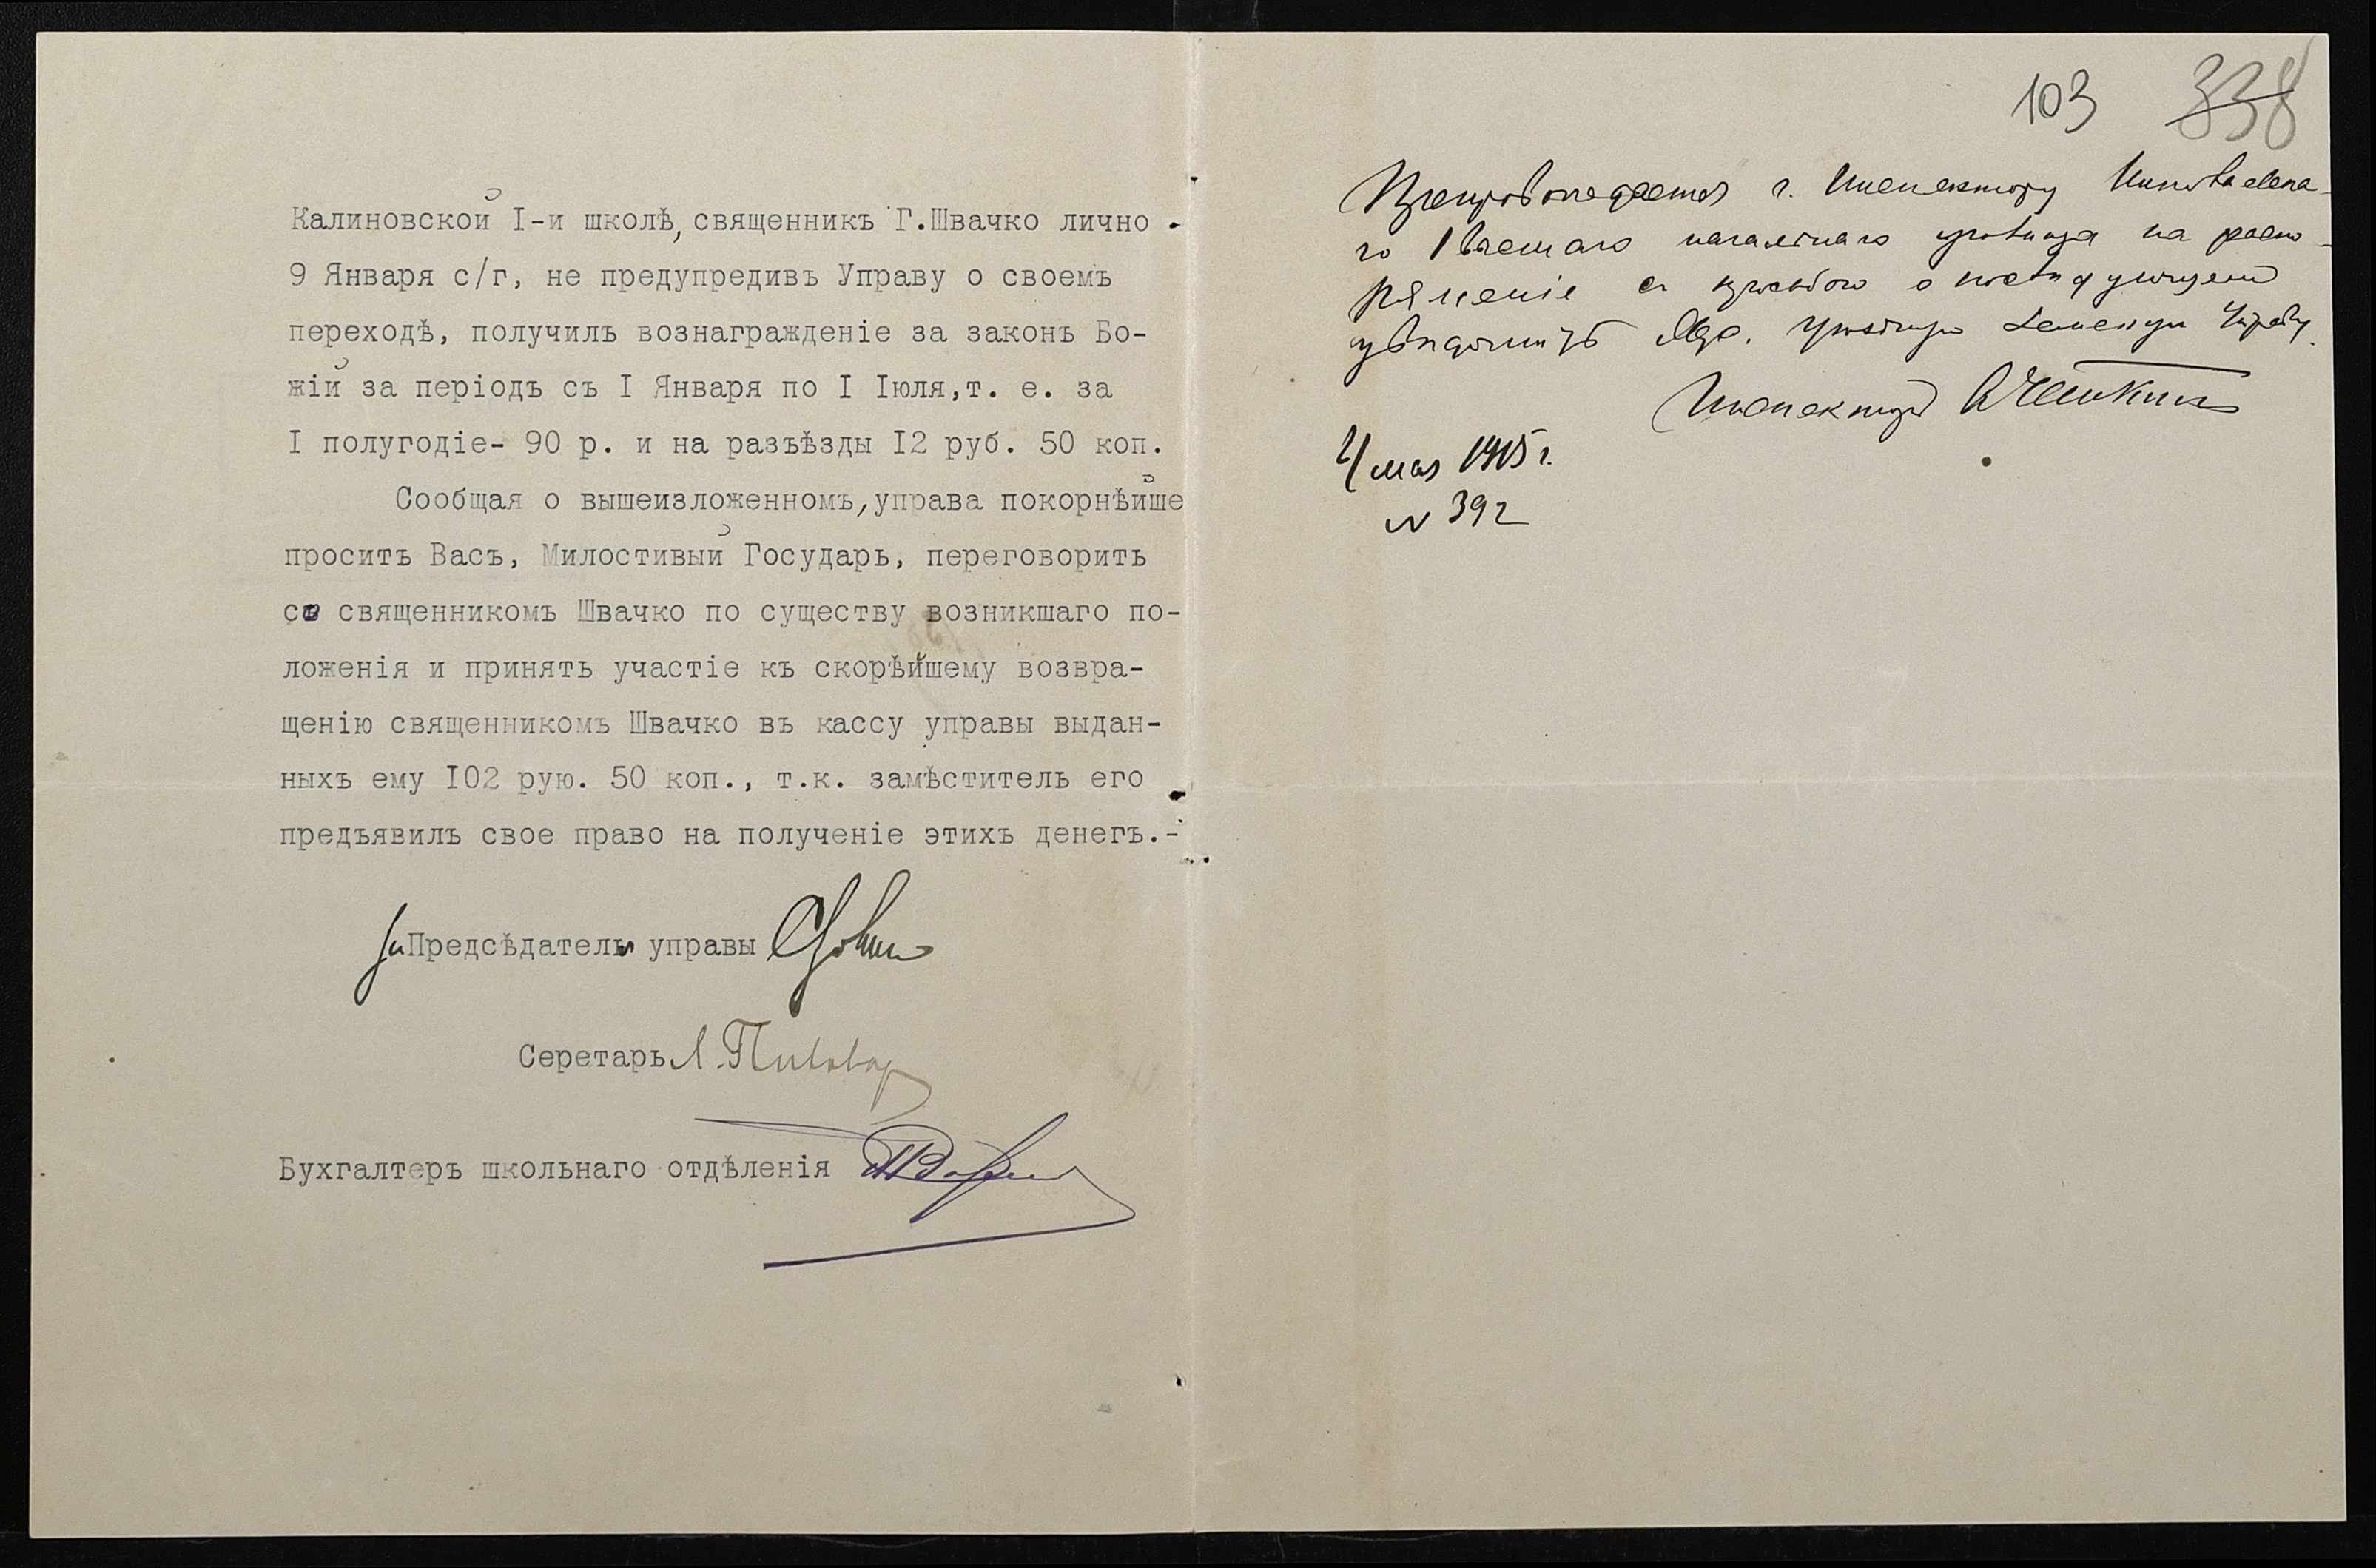 Калиновской I-й школѣ, священникъ Г.Швачко лично
9 Января с/г, не предупредивъ Управу о своемъ
переходѣ, получилъ вознагражденіе за законъ Бо-
жій за періодъ съ I Января по I Іюля,т. е. за
I полугодіе- 90 р. и на разъѣзды I2 руб. 50 коп.
Сообщая о вышеизложенномъ,управа покорнѣйше
проситъ Васъ, Милостивый Государь, переговорить
съ священникомъ Швачко по существу возникшаго по-
ложенія и принять участіе къ скорѣйшему возвра-
щенію священникомъ Швачко въ кассу управы выдан-
ныхъ ему I02 рую. 50 коп., т.к. замѣститель его
предъявилъ свое право на полученіе этихъ денегъ.-
Предсѣдатель управы
Серетарь Л. Пивовар
Бухгалтеръ школьнаго отдѣленія
103 338
Препровождается г. Инспектору
го участка на распо-
ряженіе съ просьбою о послѣдующемъ
увѣдомить уѣздную Земскую Управу.
Инспекторъ
4 мая 1915 г.
N 392